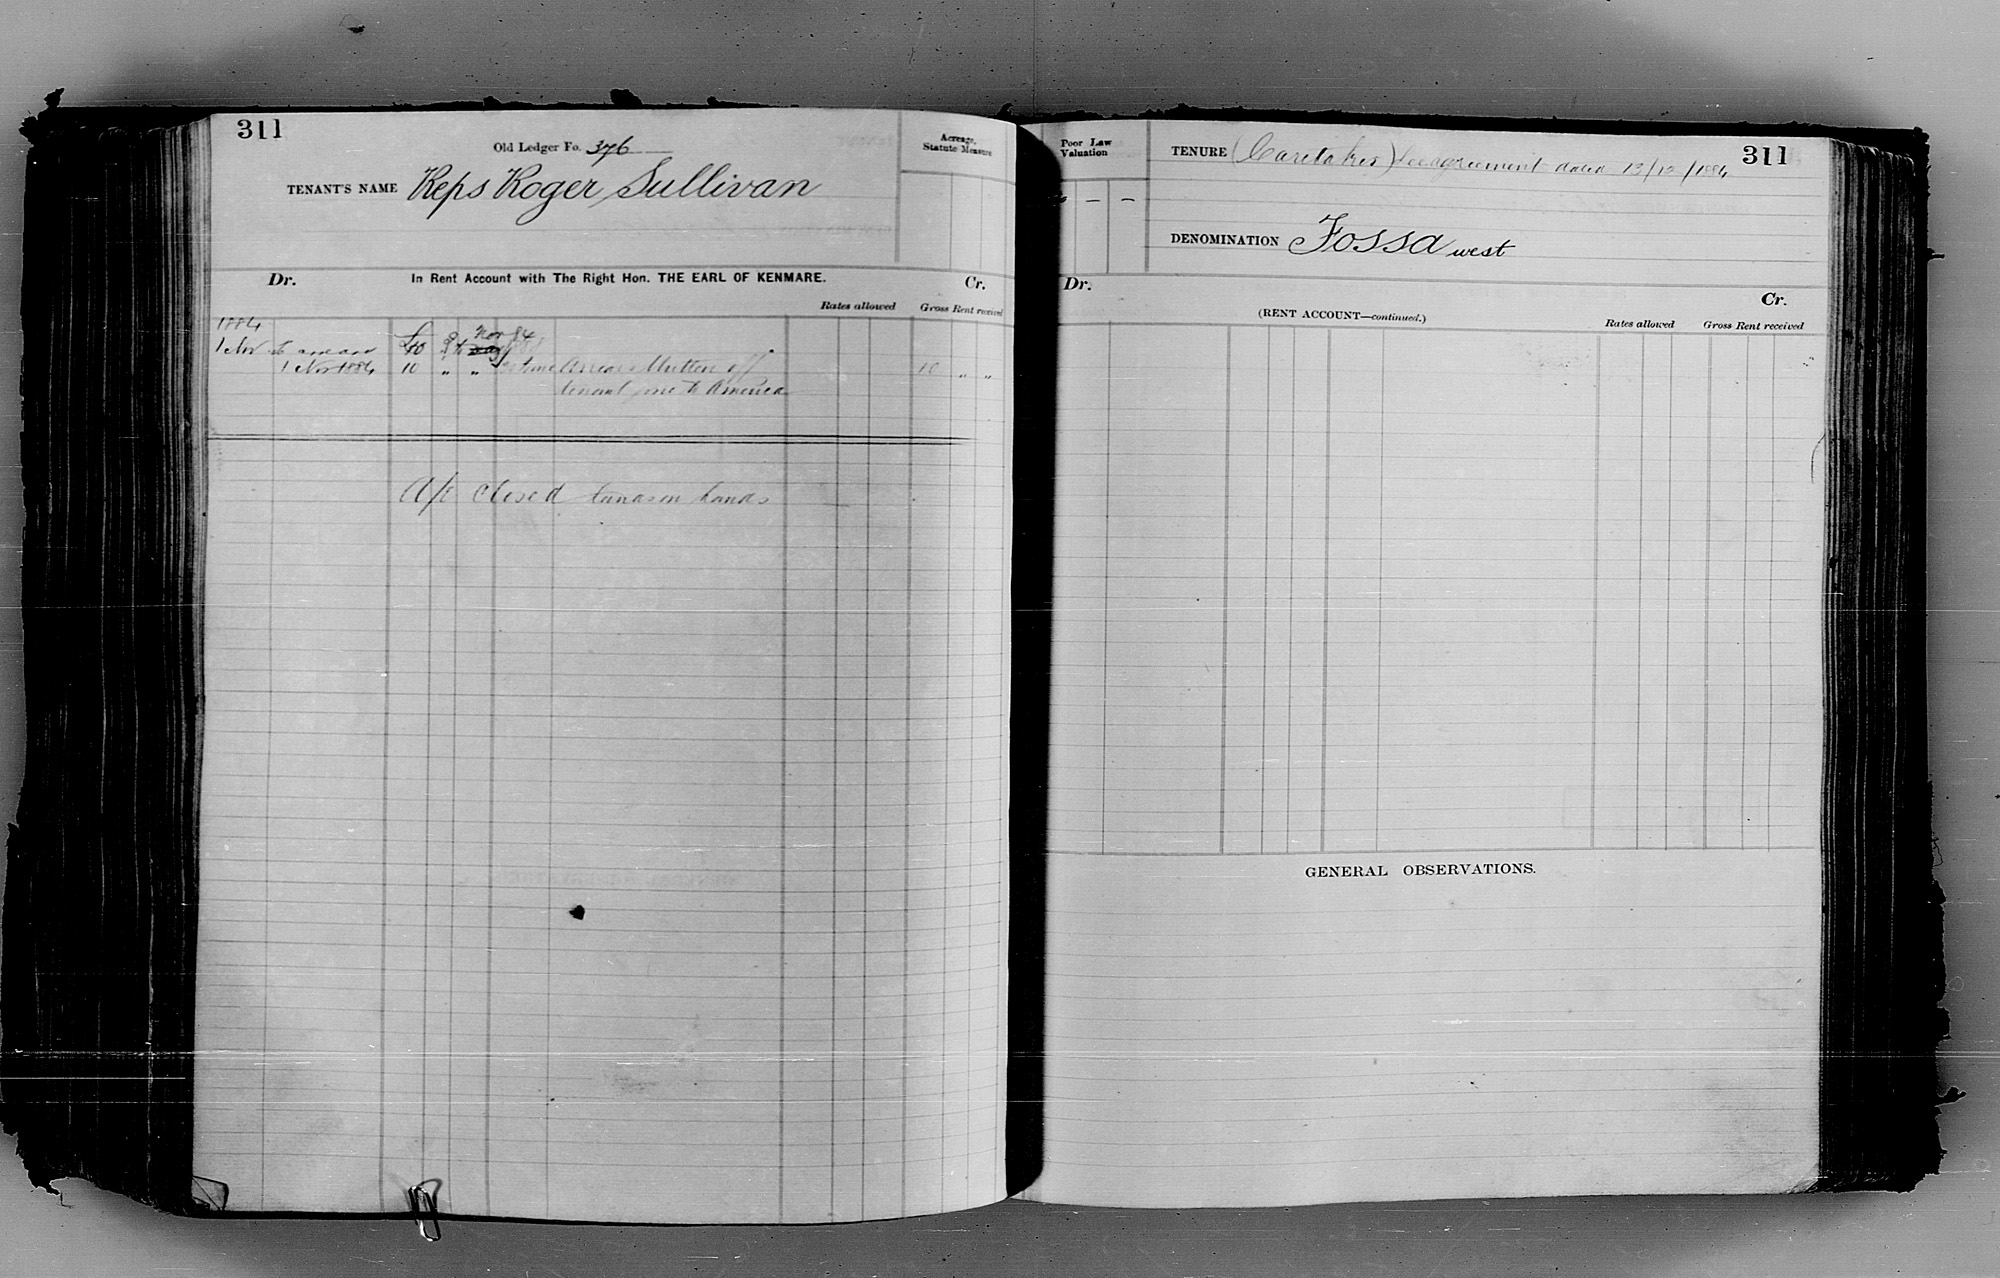 311
Old Ledger Fo. 376
TENANT'S NAME Reps Roger Sullivan
Acreage, Statute Measure
Dr. In Rent Account with The Right Hon. THE EARL OF KENMARE. Cr.
Rates allowed Gross Rent received
1884
Nov 84
1 Nov To arear £10
1 Nov 1884 10 " " Arrear Written off 10 " "
tenant gone to America
A/c closed lands in hands
Poor Law Valuation
TENURE (Caretaker) See agreement dated 13/12/1884
311
— —
DENOMINATION Fossa west
Dr. Cr.
(RENT ACCOUNT—continued.)
Rates allowed Gross Rent received
GENERAL OBSERVATIONS.